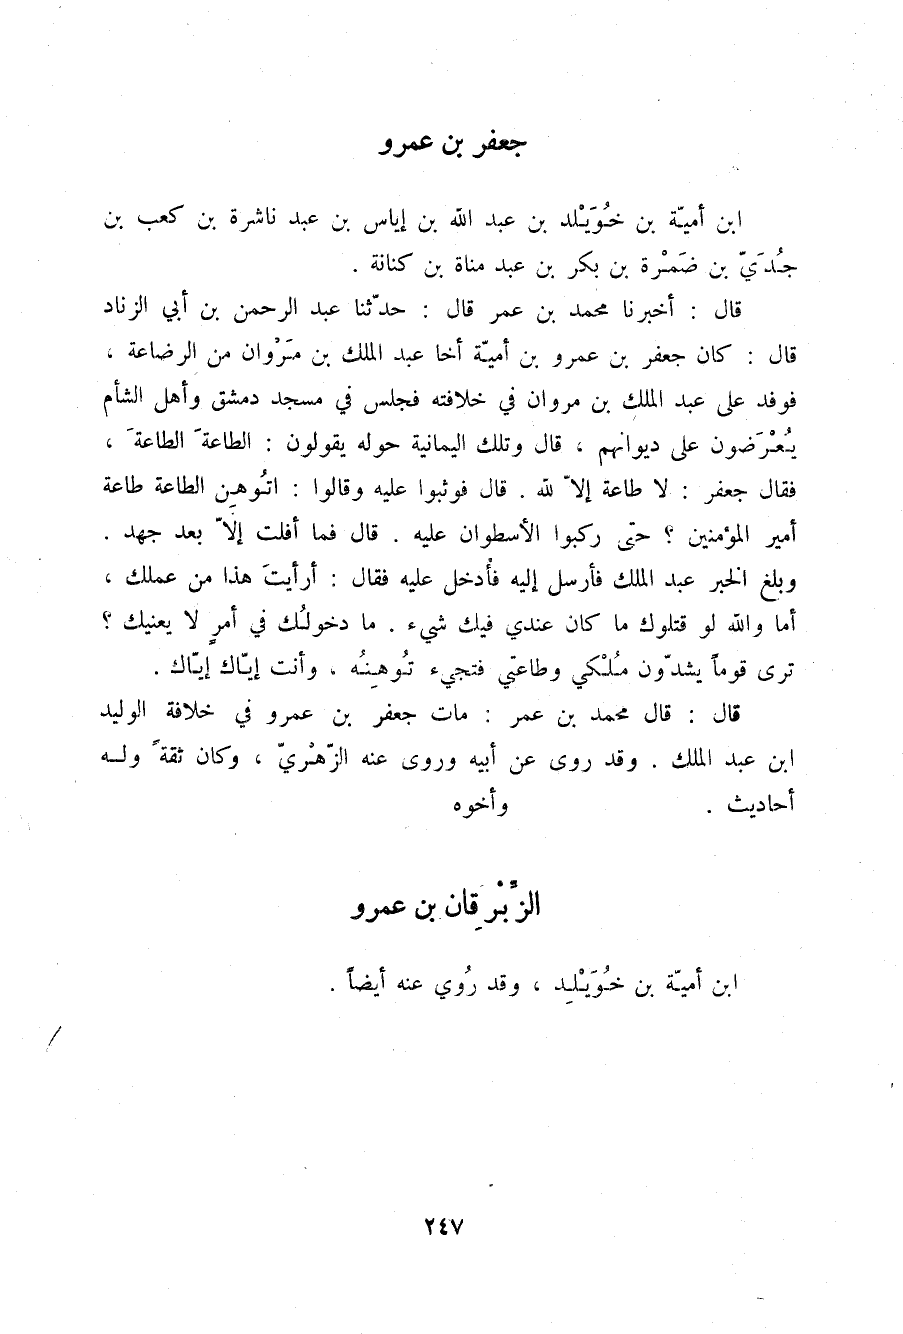 جعفر بن عمرو
ابن أميّة بن خُوَيْلد بن عبد الله بن إياس بن عبد ناشرة بن كعب بن
جُدَيّ بن ضَمْرة بن بكر بن عبد مناة بن كنانة .
قال : أخبرنا محمد بن عمر قال : حدّثنا عبد الرحمن بن أبي الزناد
قال : كان جعفر بن عمرو بن أميّة أخا عبد الملك بن مَرْوان من الرضاعة ،
فوفد على عبد الملك بن مروان في خلافته فجلس في مسجد دمشق وأهل الشأم
يُعْرَضون على ديوانهم ، قال وتلك اليمانية حوله يقولون : الطاعةَ الطاعةَ ،
فقال جعفر : لا طاعة إلاّ لله . قال فوثبوا عليه وقالوا : اتُوهِن الطاعة طاعة
أمير المؤمنين ؟ حتى ركبوا الأسطوان عليه . قال فما أفلت إلاّ بعد جهد .
وبلغ الخبر عبد الملك فأرسل إليه فأُدخل عليه فقال : أرأيتَ هذا من عملك ،
أما والله لو قتلوك ما كان عندي فيك شيء . ما دخولُك في أمرٍ لا يعنيك ؟
ترى قوماً يشدّون مُلْكي وطاعتي فتجيء تُوهِنُه ، وأنت إيّاك إيّاك .
قال : قال محمد بن عمر : مات جعفر بن عمرو في خلافة الوليد
ابن عبد الملك . وقد روى عن أبيه وروى عنه الزّهْريّ ، وكان ثقةً وله
أحاديث . وأخوه
الزِّبْرِقان بن عمرو
ابن أميّة بن خُوَيْلِد ، وقد رُوي عنه أيضاً .
٢٤٧